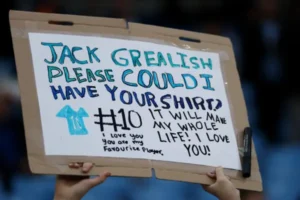 JACK GREALISH
PLEASE COULD I
HAVE YOUR SHIRT?
#10
I love you
you are my
favourite player.
IT WILL MAKE
MY WHOLE
LIFE! I LOVE
YOU!